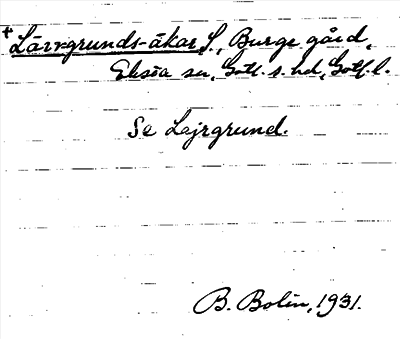 + Lärrgrunds-åkar, S., Burge gård,
Eksta sn, Gotl. s. hd, Gotl. l.
Se Lejrgrund.
B. Bolin, 1931.